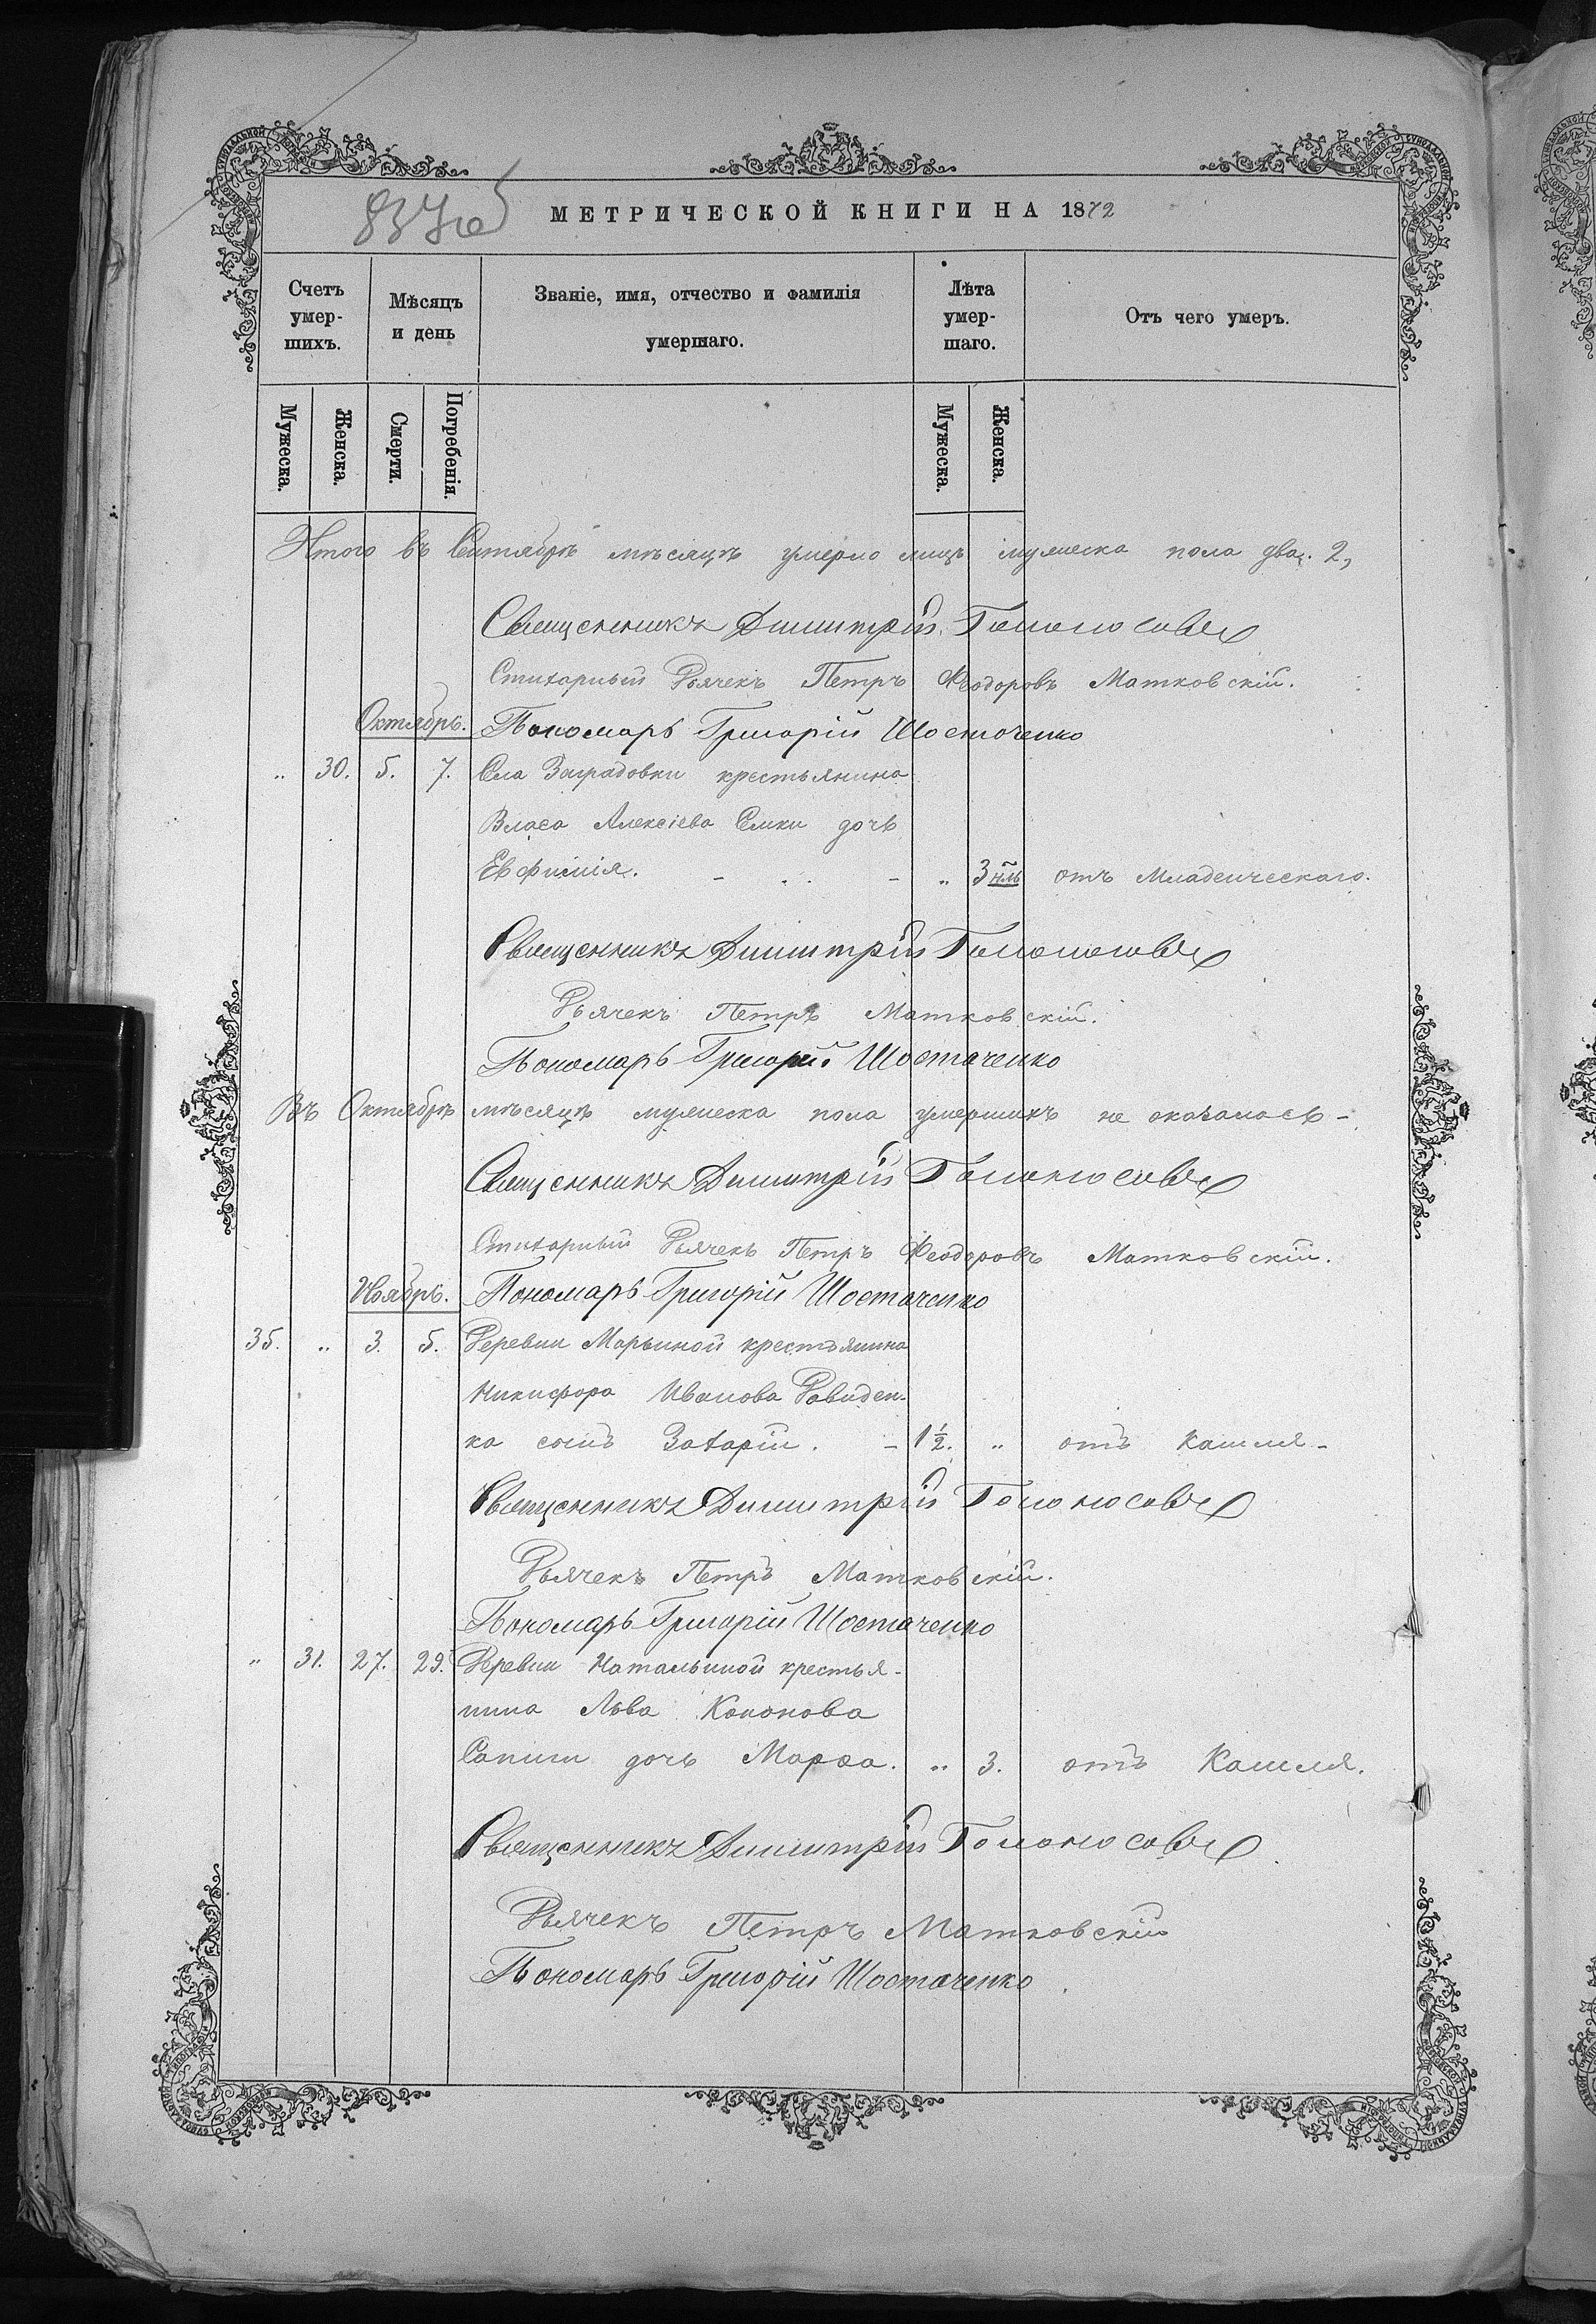 МЕТРИЧЕСКОЙ КНИГИ НА 1872
Счетъ умер- шихъ.
Мѣсяцъ и день
Званіе, имя, отчество и фамилія умершаго.
Лѣта умер- шаго.
Отъ чего умеръ.
Мужеска. Женска. Смерти. Погребенія. Мужеска. Женска.
Итого въ Сентябрѣ мѣсяцѣ умерло лицъ мужеска пола два. 2,
Священникъ Димитрій
Стихарный Дьячекъ Петръ Ѳеодоровъ Матковскій.
Октябрь. Пономарь Григорій Шостаченко
„ 30. 5. 7. Села Заградовки крестьянина
Власа Алексіева Семки дочь
Евфимія. - . . - „ 3 нль отъ Младенческаго.
Священникъ Димитрій
Дьячекъ Петръ Матковскій.
Пономарь Григорій Шостаченко
Въ Октябрѣ мѣсяцѣ мужеска пола умершихъ не оказалось -
Священникъ Димитрій
Стихарный Дьячекъ Петръ Ѳеодоровъ Матковскій.
Ноябрь. Пономарь Григорій Шостаченко
35. „ 3. 5. Деревни Марьиной крестьянина
Никифора Иванова Давиден-
ка сынъ Захарій. - 1½. „ отъ кашля -
Священникъ Димитрій
Дьячекъ Петръ Матковскій.
Пономарь Григорій Шостаченко
„ 31. 27. 29. Деревни Натальиной крестья-
нина Льва Кононова
Сапиги дочь Марѳа. „ 3. отъ Кашля.
Священникъ Димитрій
Дьячекъ Петръ Матковскій
Пономарь Григорій Шостаченко